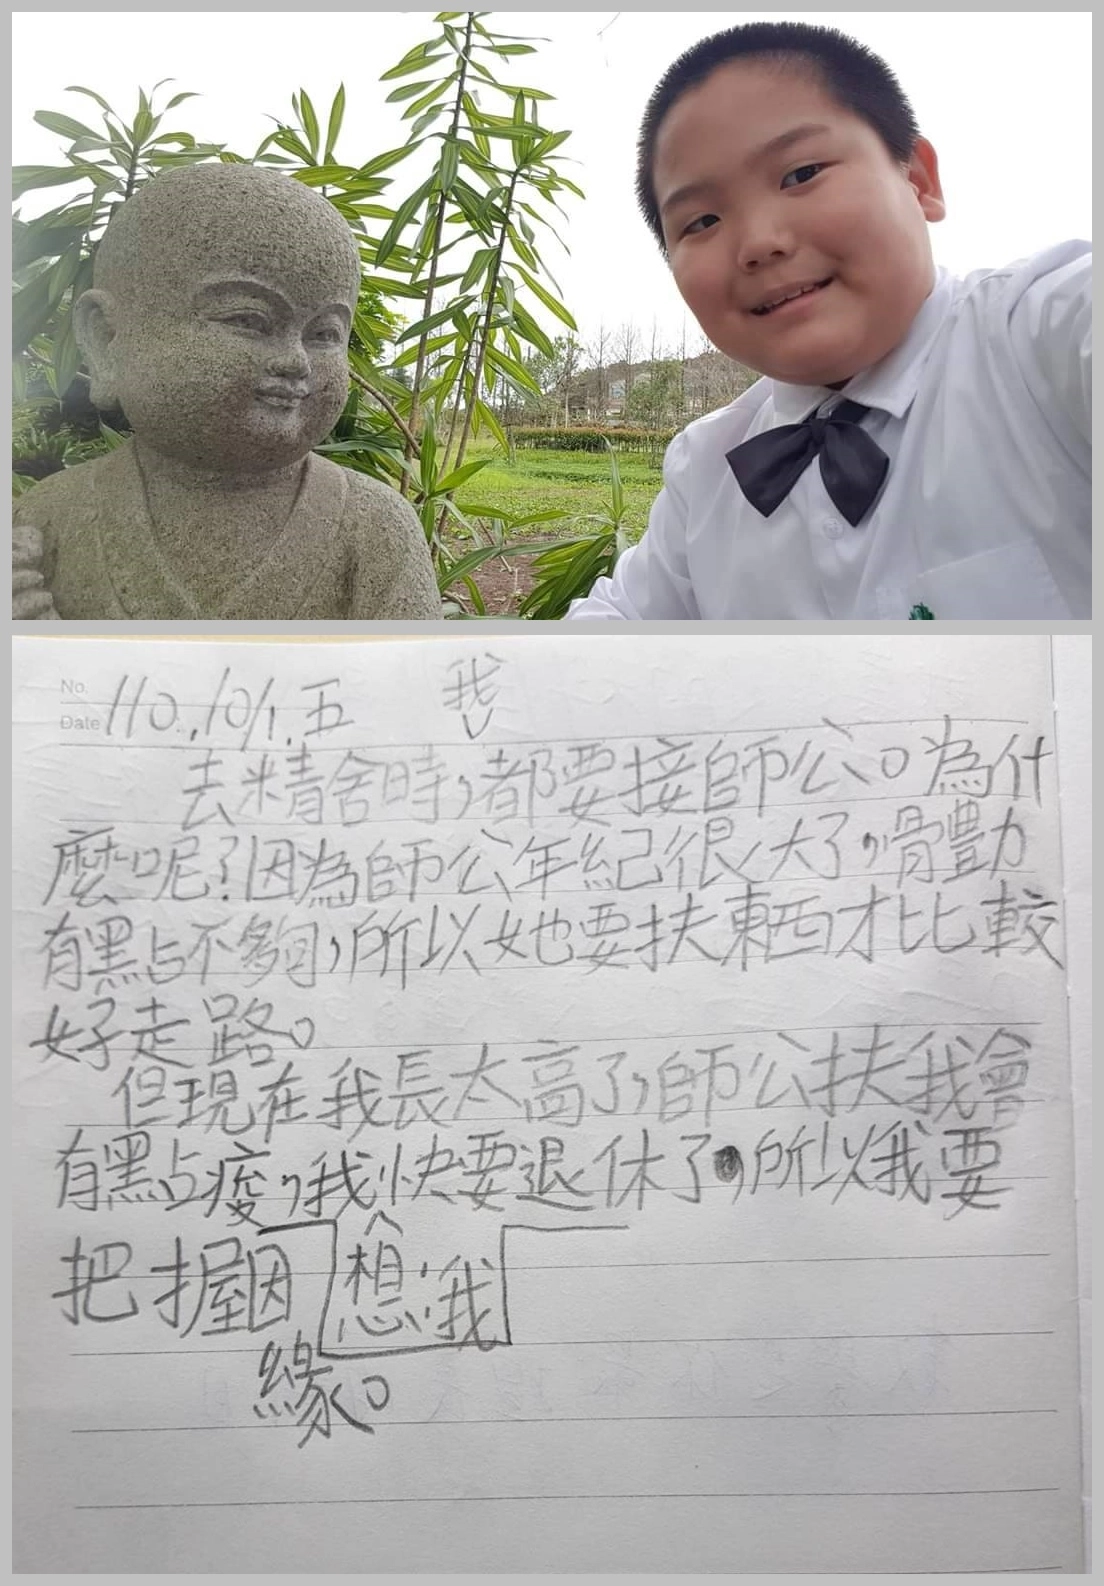 No.
Date 110.,10/1.五
我
去精舍時,都要接師公。為什
麼呢?因為師公年紀很大了,骨豊力
有點不夠,所以她要扶東西才比較
好走路。
但現在我長太高了,師公扶我會
有點痠,我快要退休了,所以我要
想我
把握因
緣。